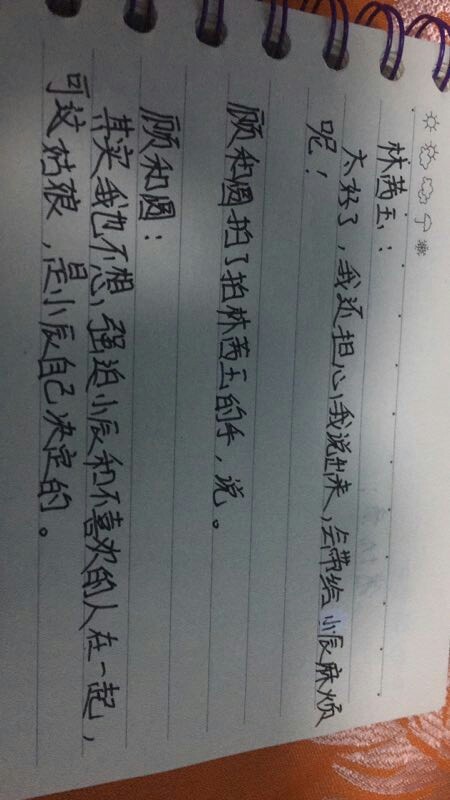 林茜玉：
太好了，我还担心，我说出来，会带给小辰麻烦
呢！
顾和圆拍了拍林茜玉的手，说。
顾和圆：
其实我也不想，强迫小辰和不喜欢的人在一起，
可这姑娘，是小辰自己决定的。